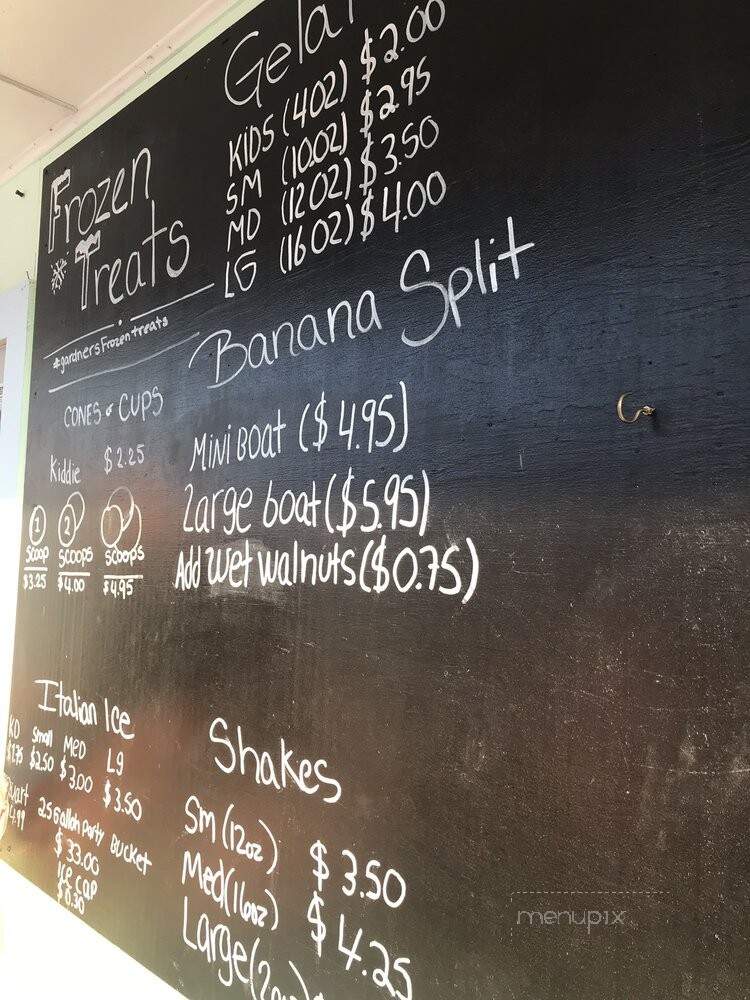 Frozen
Treats
#gardnersFrozentreats
CONES or CUPS
Kiddie $2.25
1 2
SCOOP SCOOPS SCOOPS
$3.25 $4.00 $4.95
KIDS (4OZ) $2.00
SM (10OZ) $2.95
MD (12OZ) $3.50
LG (16OZ) $4.00
Banana Split
Mini Boat ($4.95)
Large boat ($5.95)
Add wet walnuts ($0.75)
Italian Ice
KD Small MED Lg
$1.75 $2.50 $3.00 $3.50
Gallon Party Bucket
$33.00
Shakes
Sm (12oz) $3.50
Med (16oz) $4.25
Large
menupix